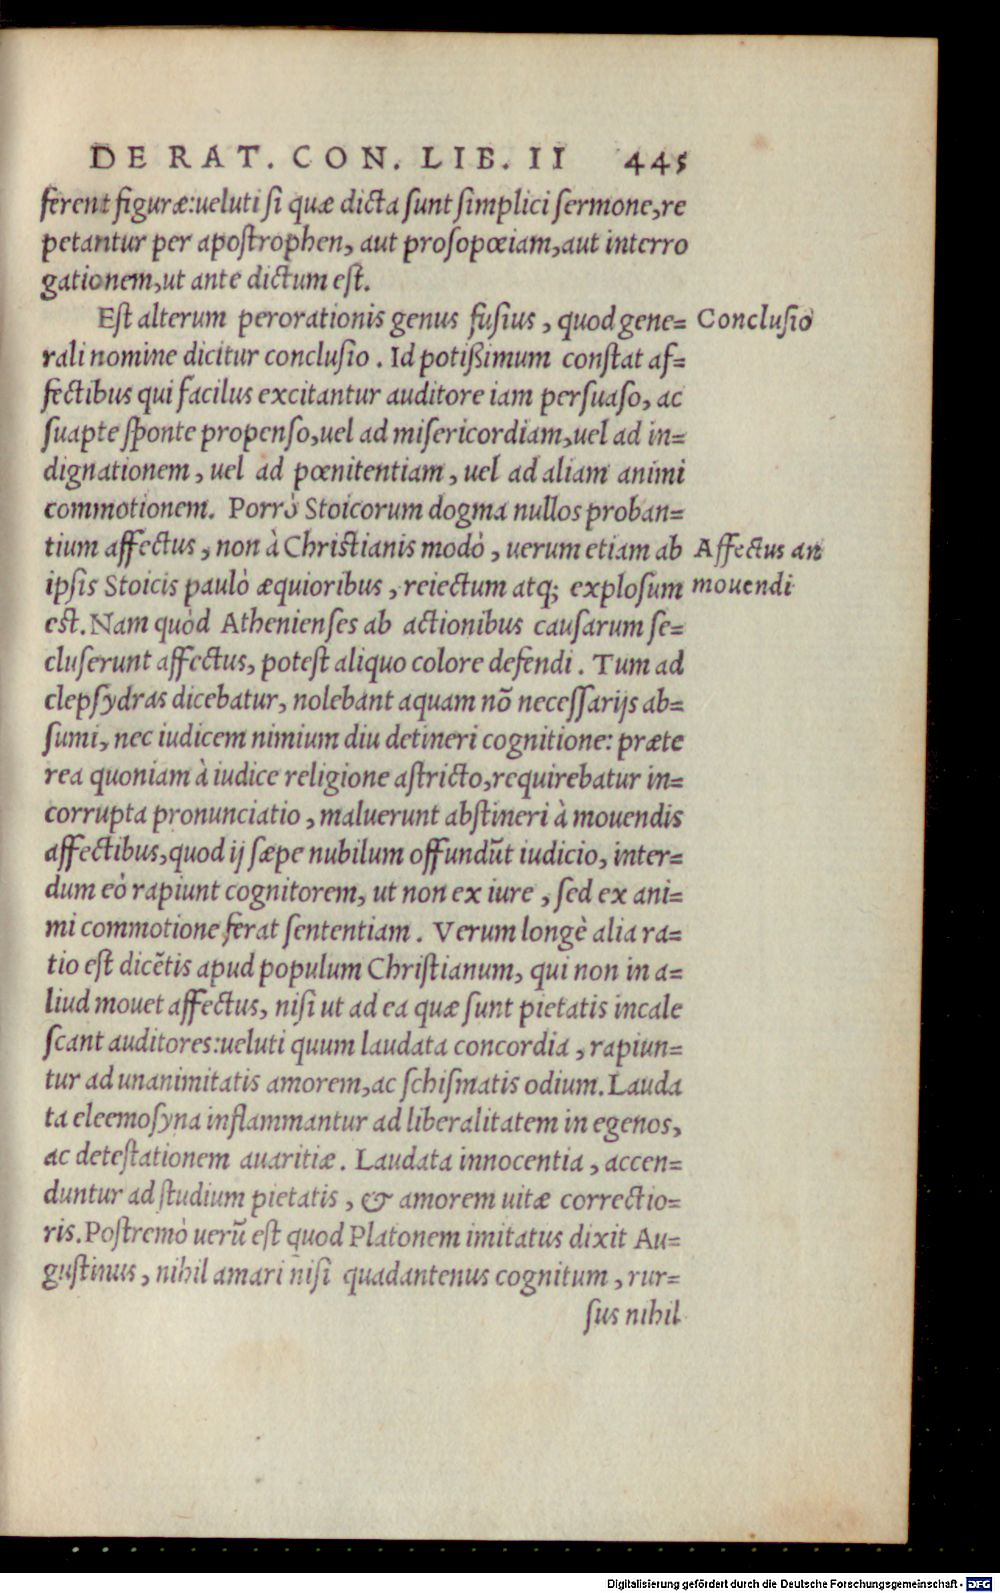 DE RAT. CON. LIB. II 445
ferent figuræ:ueluti si quæ dicta sunt simplici sermone,re
petantur per apostrophen, aut prosopœiam,aut interro
gationem,ut ante dictum est.
Est alterum perorationis genus fusius, quod gene= Conclusio
rali nomine dicitur conclusio. Id potißimum constat af=
fectibus qui facilus excitantur auditore iam persuaso, ac
suapte sponte propenso,uel ad misericordiam,uel ad in=
dignationem, uel ad pœnitentiam, uel ad aliam animi
commotionem. Porrò Stoicorum dogma nullos proban=
tium affectus, non à Christianis modò, uerum etiam ab Affectus an
ipsis Stoicis paulò æquioribus, reiectum atq; explosum mouendi
est. Nam quòd Athenienses ab actionibus causarum se=
cluserunt affectus, potest aliquo colore defendi. Tum ad
clepsydras dicebatur, nolebant aquam nõ necessarijs ab=
sumi, nec iudicem nimium diu detineri cognitione: præte
rea quoniam à iudice religione astricto,requirebatur in=
corrupta pronunciatio, maluerunt abstineri à mouendis
affectibus,quod ij sæpe nubilum offundũt iudicio, inter=
dum eò rapiunt cognitorem, ut non ex iure, sed ex ani=
mi commotione ferat sententiam. Verum longè alia ra=
tio est dicẽtis apud populum Christianum, qui non in a=
liud mouet affectus, nisi ut ad ea quæ sunt pietatis incale
scant auditores:ueluti quum laudata concordia, rapiun=
tur ad unanimitatis amorem,ac schismatis odium. Lauda
ta eleemosyna inflammantur ad liberalitatem in egenos,
ac detestationem auaritiæ. Laudata innocentia, accen=
duntur ad studium pietatis, & amorem uitæ correctio=
ris. Postremò uerũ est quod Platonem imitatus dixit Au=
gustinus, nihil amari nisi quadantenus cognitum, rur=
sus nihil
Digitalisierung gefördert durch die Deutsche Forschungsgemeinschaft - DFG